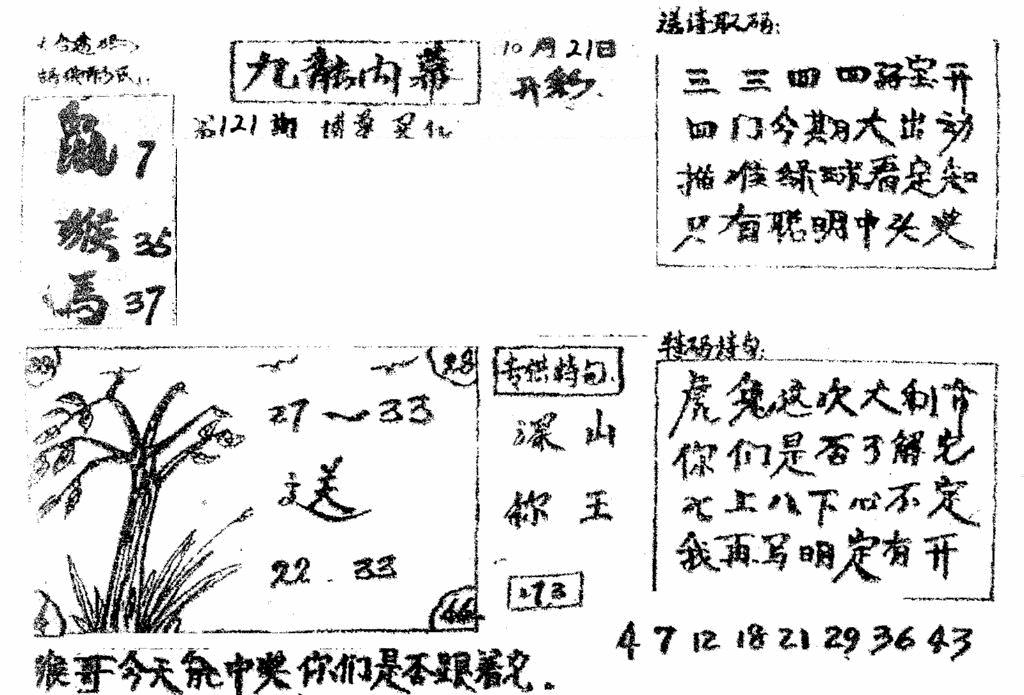 九龙内幕
10月21日
开彩
第121期 博彩
鼠 7
猴 35
馬 37
三三四四孖宝开
四门今期大出动
描准绿球看定知
只有聪明中头奖
27～33
送
22.33
28
44
专供特句
深山
你王
173
特码诗句:
虎兔这次大利市
你们是否了解它
七上八下心不定
我再写明定有开
4 7 12 18 21 29 36 43
猴哥今天能中奖你们是否跟着它.